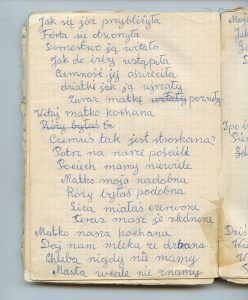 Jak się już przybliżyła
Forta się otworzyła
Domostwo ją witało
Jak do izby wstąpiła
Ciemność jej oświeciła
dziatki jak ją ujrzały
Zaraz matkę poznały
Witaj matko kochana
Róży byłaś
Czemuś tak jest stroskana?
Patrz na nasze pościele
Pociech mamy niewiele
Matko moja nadobna
Róży byłaś podobna
Lica miałaś czerwone
Teraz masz je zblednone
Matko nasza kochana
Daj nam mleka ze dzbana
Chleba nigdy nie mamy
Masła wcale nie znamy